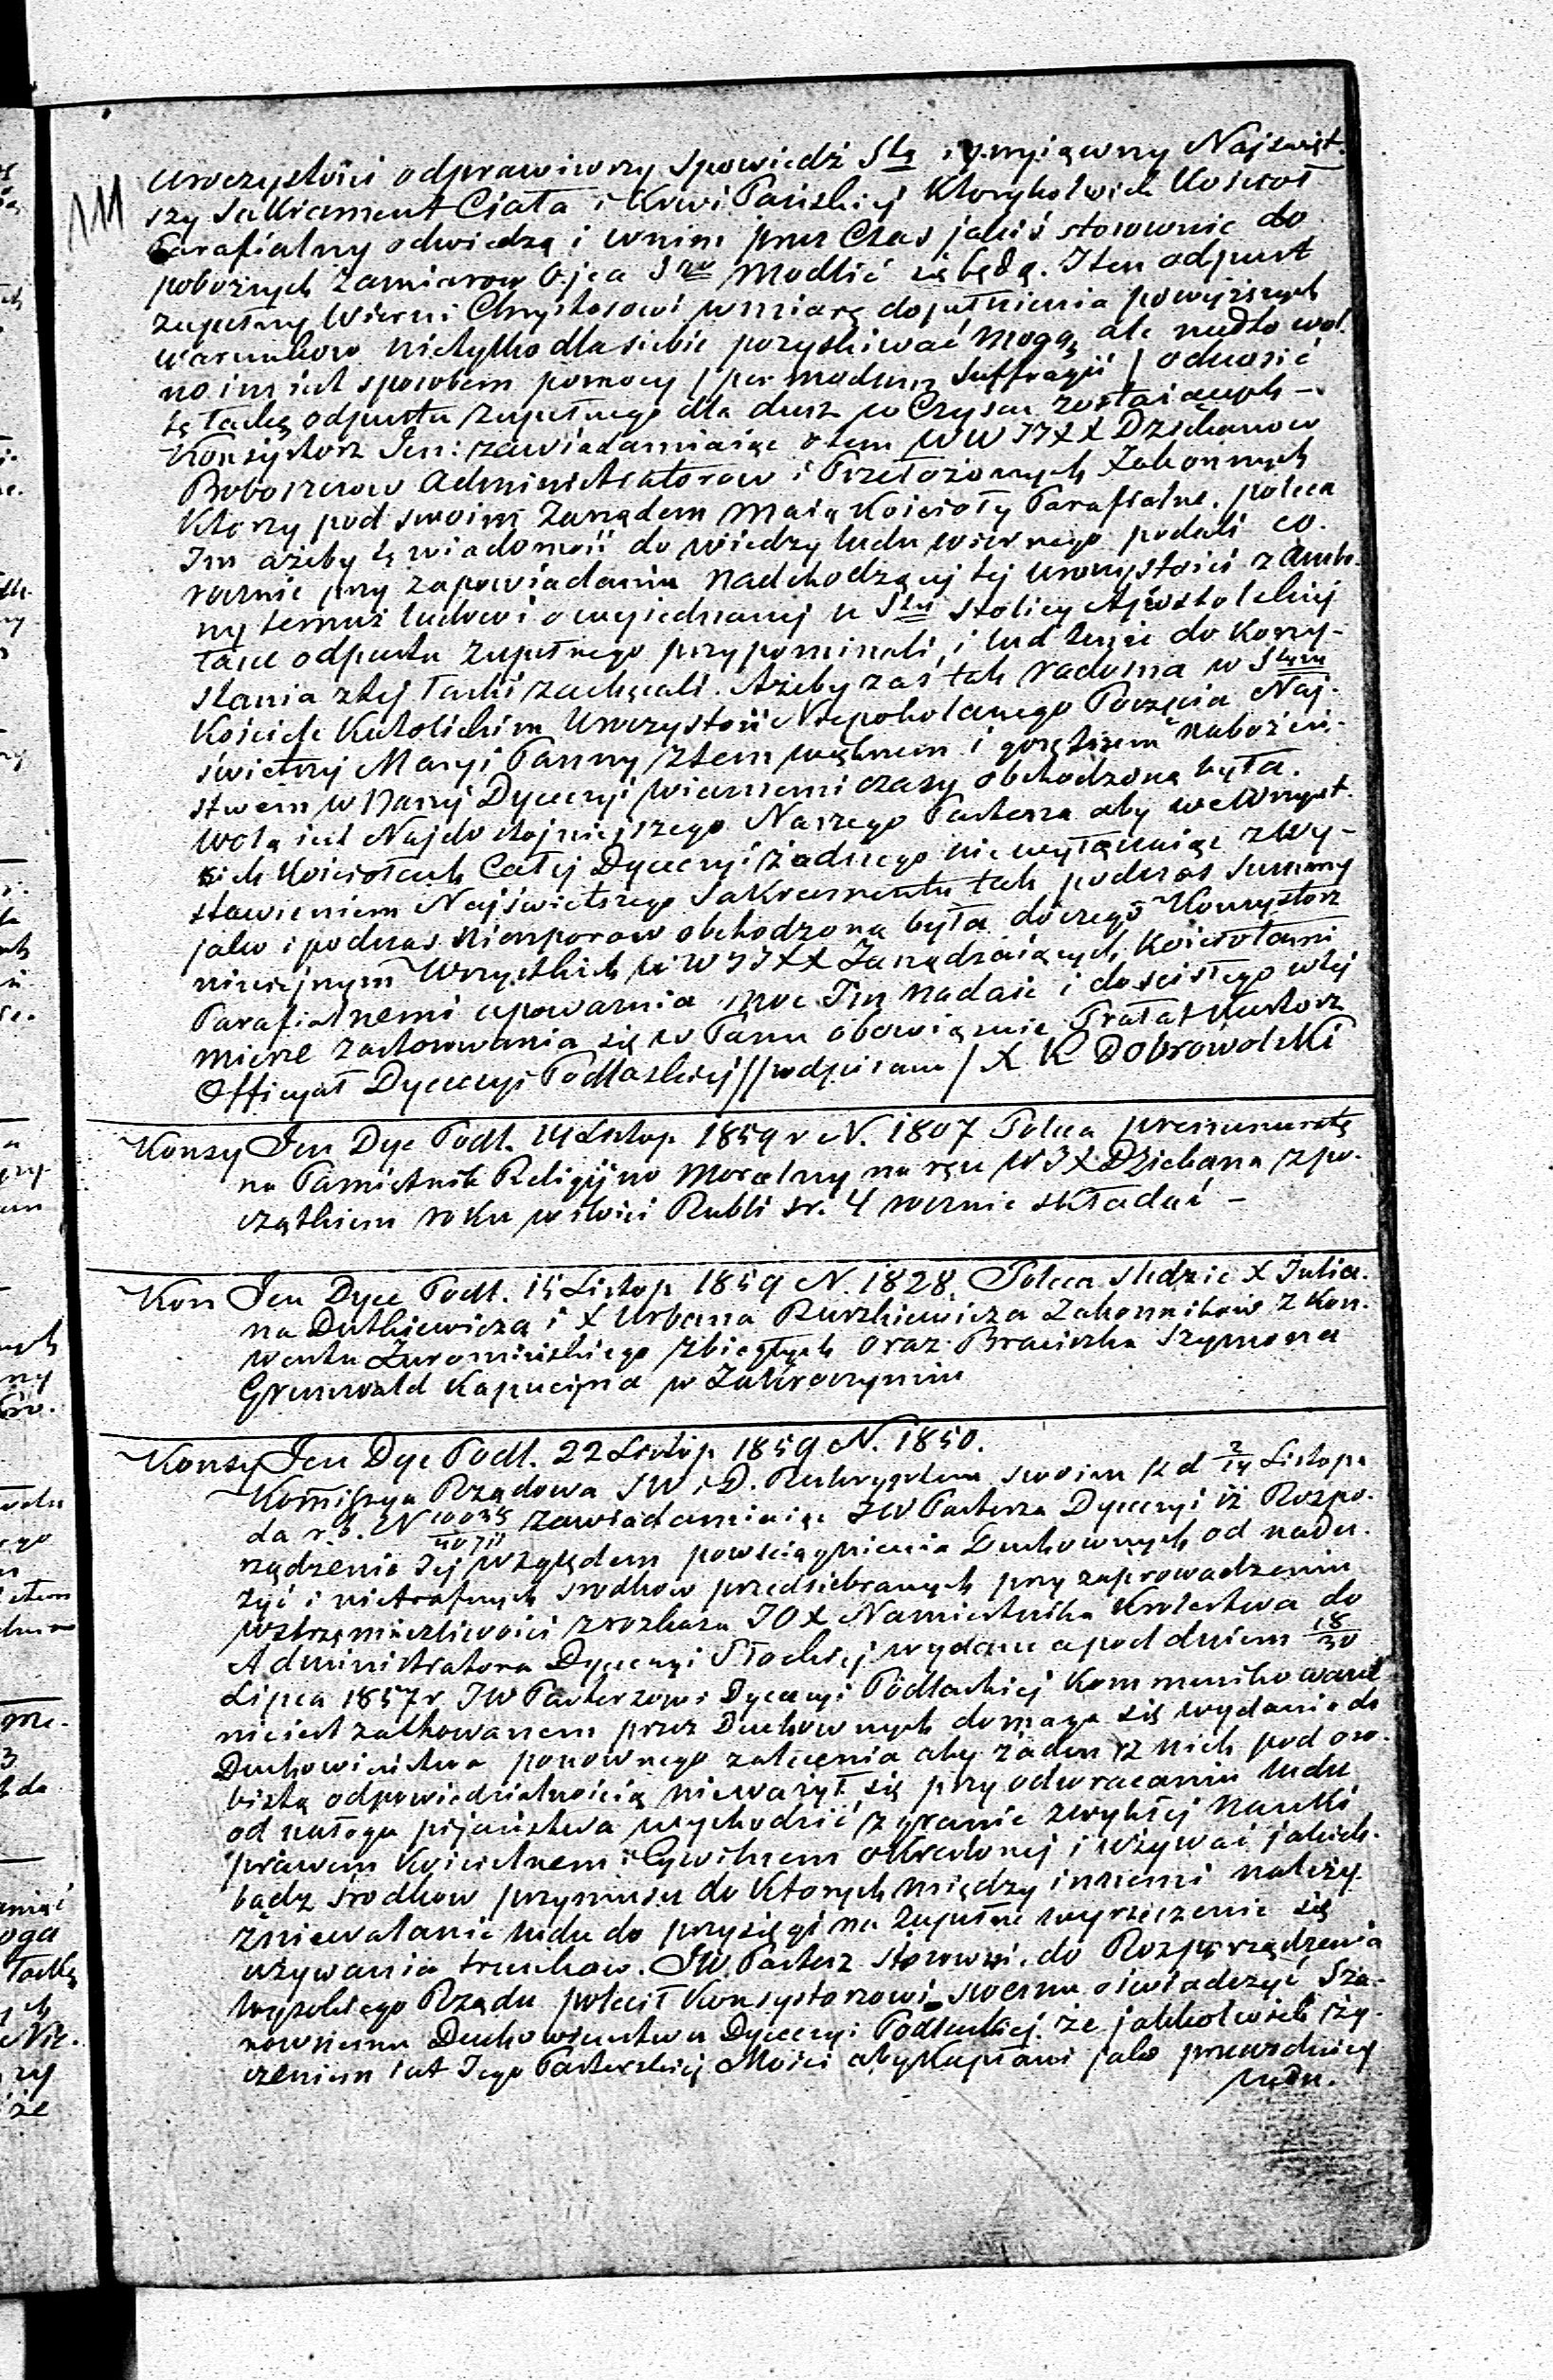 111
uroczystości odprawiwszy spowiedź Stą i przyiąwszy Najświęt.
szy Sakrament Ciała i Krwi Pańskiej Którykolwiek Kościoł
Parafialny odwiedzą i wnim przez Czas jakiś stosownie do
pobożnych Zamiarow Ojca Sgo modlić się będą. Iten odpust
zupełny Wierni Chrystusowi wmiarę dopełnienia powyższych
warunkow nietylko dlasiebie pozyskiwać mogą, ale nadto wol.
no im jest sposobem pomocy / per modum suffragii / odnosić
tę łaskę odpustu zupełnego dla dusz w Czyscu zostaiących —
Konsystorz Jen: zawiadamiaiąc otem WWJJXX Dziekanow
Proboszczow Administratorow i Przełożonych Zakonnych
Ktorzy pod swoim Zarządem maią Kościoły Parafialne, poleca
Im ażeby tę wiadomość do wiedzy ludu wiernego podali co.
rocznie przy zapowiadaniu nadchodzącej tej uroczystości z ambo.
ny temuż ludowi o wyiednanej u Stej Stolicy Apostolskiej
łasce odpustu zupełnego przypominali, i lud tenże do korzy-
stania ztej łaski zachęcali. Ażeby zaś tak radosna w Stym
Kościele Katolickim Uroczystość Niepokolanego Poczęcia Naj-
świetszej Maryi Panny ztem większem i gorętszem nabożeń-
stwem w Naszej Dyecezyi wiecznemi czasy obchodzoną była.
Wolą jest Najdostojniejszego Naszego Pasterza aby we Wszyst.
kich Kościołach Całej Dyecezyi żadnego nie wyłączaiąc z Wy-
stawieniem Najświetszego Sakramentu tak podczas Summy
jako i podczas Nieszporow obchodzona była do czego Konsystorz
niniejszym Wszystkich WWJJXX Zarządzaiących Kościołami
Parafialnemi upoważnia, moc Im nadaie i do ścisłego wtej
mierze zastosowania się w Panu obowiązuie Prałat Kustosz
Officyał Dyecezyi Podlaskiej // podpisano / X K Dobrowolski
Konsy Jen Dye Podl. 14 Listop. 1859 r N. 1807 Poleca prenumeratę
na Pamietnik Religijno Moralny na ręce WJX Dziekana z po-
czątkiem roku w ilości Rubli sr. 4 rocznie składać —
Kon Jen Dyec Podl. 15 Listop 1859 N. 1828. Poleca śledzić X Julia.
na Dutkiewicza i X Urbana Zakonnikow z Kon.
wentu Żuromińskiego zbiegłych oraz Braciszka Szymona
Grunwald Kapucyna w Zakroczymiu
Konsy Jen Dye Podl. 22 Listop 1859 N. 1850.
Kommissya Rządowa SW i D. Reskryptem swoim z d 2/14 Listopa
da r. b. N zawiadamiaiąc JW Pasterza Dyecezyi iż Rozpo.
rządzenie Jej względem powsciągnienia Duchownych od nadu.
żyć i nietrafnych srodkow przedsiebranych przy zaprowadzeniu
wstrzemiezliwości z rozkazu JOX Namiestnika Krolestwa do
Administratora Dyecezyi Płockiej wydane a pod dniem 18/30
Lipca 1857 r JW Pasterzowi Dyecezyi Podlaskiej Kommunikowane
nie iest zachowanem przez Duchownych domaga się wydania do
Duchowieństwa ponownego zalecenia aby żaden z nich pod oso-
bistą odpowiedzialnością nieważył się przy odwracaniu ludu
od nałogu pijaństwa wychodzić z granic zwykłej nauki
prawem Kościelnem i Cywilnem okreslonej i używać jakich-
bądz środkow przymusu do Ktorych między innemi należy
zniewalanie ludu do przysięgi na zupełne wyrzeczenie się
używania trunkow. JW. Pasterz stosownie do Rozporządzenia
Wysokiego Rządu polecił Konsystorzowi swemu oświadczyć Sza-
nownemu Duchowienstwu Dyecezyi Podlaskiej że jakkolwiek ży-
czeniem iest Jego Pasterskiej Mości aby Kapłani jako przewodnicy
ludu.